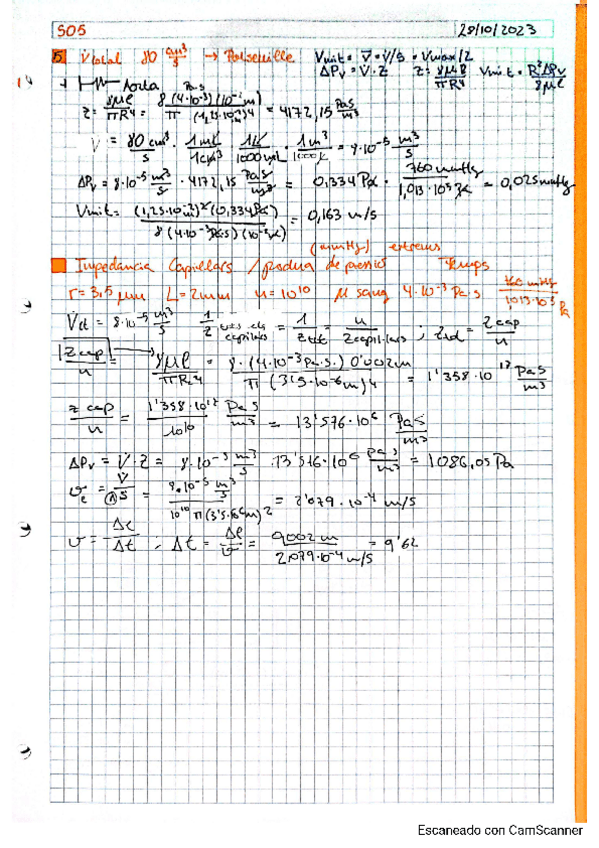 S05 28/10/2023
5 V total 80 cm³/s → Poiseuille Vmit = V̄ = V̇/S = Vmax/2
ΔPv = V̇·Z Z = 8μℓ/πR⁴ Vmit = R²ΔPv/8μℓ
Aorta
Z = 8μℓ/πR⁴ = 8(4·10⁻³)(10⁻²m)/π(1,25·10⁻²m)⁴ = 4172,15 Pa·s/m³
V̇ = 80 cm³/s · 1mL/1cm³ · 1L/1000mL · 1m³/1000L = 8·10⁻⁵ m³/s
ΔPv = 8·10⁻⁵ m³/s · 4172,15 Pa·s/m³ = 0,334 Pa · 760 mmHg/1,013·10⁵ Pa = 0,025 mmHg
Vmit = (1,25·10⁻²m)²(0,334Pa)/8(4·10⁻³Pa·s)(10⁻²m) = 0,163 m/s
(mmHg) extrems
Impedancia Capil·lars / pèrdua de pressió Temps
r = 3,5 μm L = 2mm n = 10¹⁰ μ sang 4·10⁻³ Pa·s 760 mmHg/1,013·10⁵ Pa
V̇ct = 8·10⁻⁵ m³/s 1/Z capil·lars = 1/Z tot = n/Z capil·lars ; Z tot = Z cap/n
Z cap/n = 8μℓ/πR⁴ = 8·(4·10⁻³Pa·s.) 0'002m/π(3'5·10⁻⁶m)⁴ = 1'358·10¹⁷ Pa·s/m³
Z cap/n = 1'358·10¹⁷/10¹⁰ Pa·s/m³ = 13'576·10⁶ Pa·s/m³
ΔPv = V̇·Z = 8·10⁻⁵ m³/s · 13'576·10⁶ Pa·s/m³ = 1086,05 Pa
v = V̇/nS = 8·10⁻⁵ m³/s/10¹⁰ π(3'5·10⁻⁶m)² = 2'079·10⁻⁴ m/s
v = Δℓ/Δt ; Δt = Δℓ/v = 0,002 m/2,079·10⁻⁴ m/s = 9'62
Escaneado con CamScanner